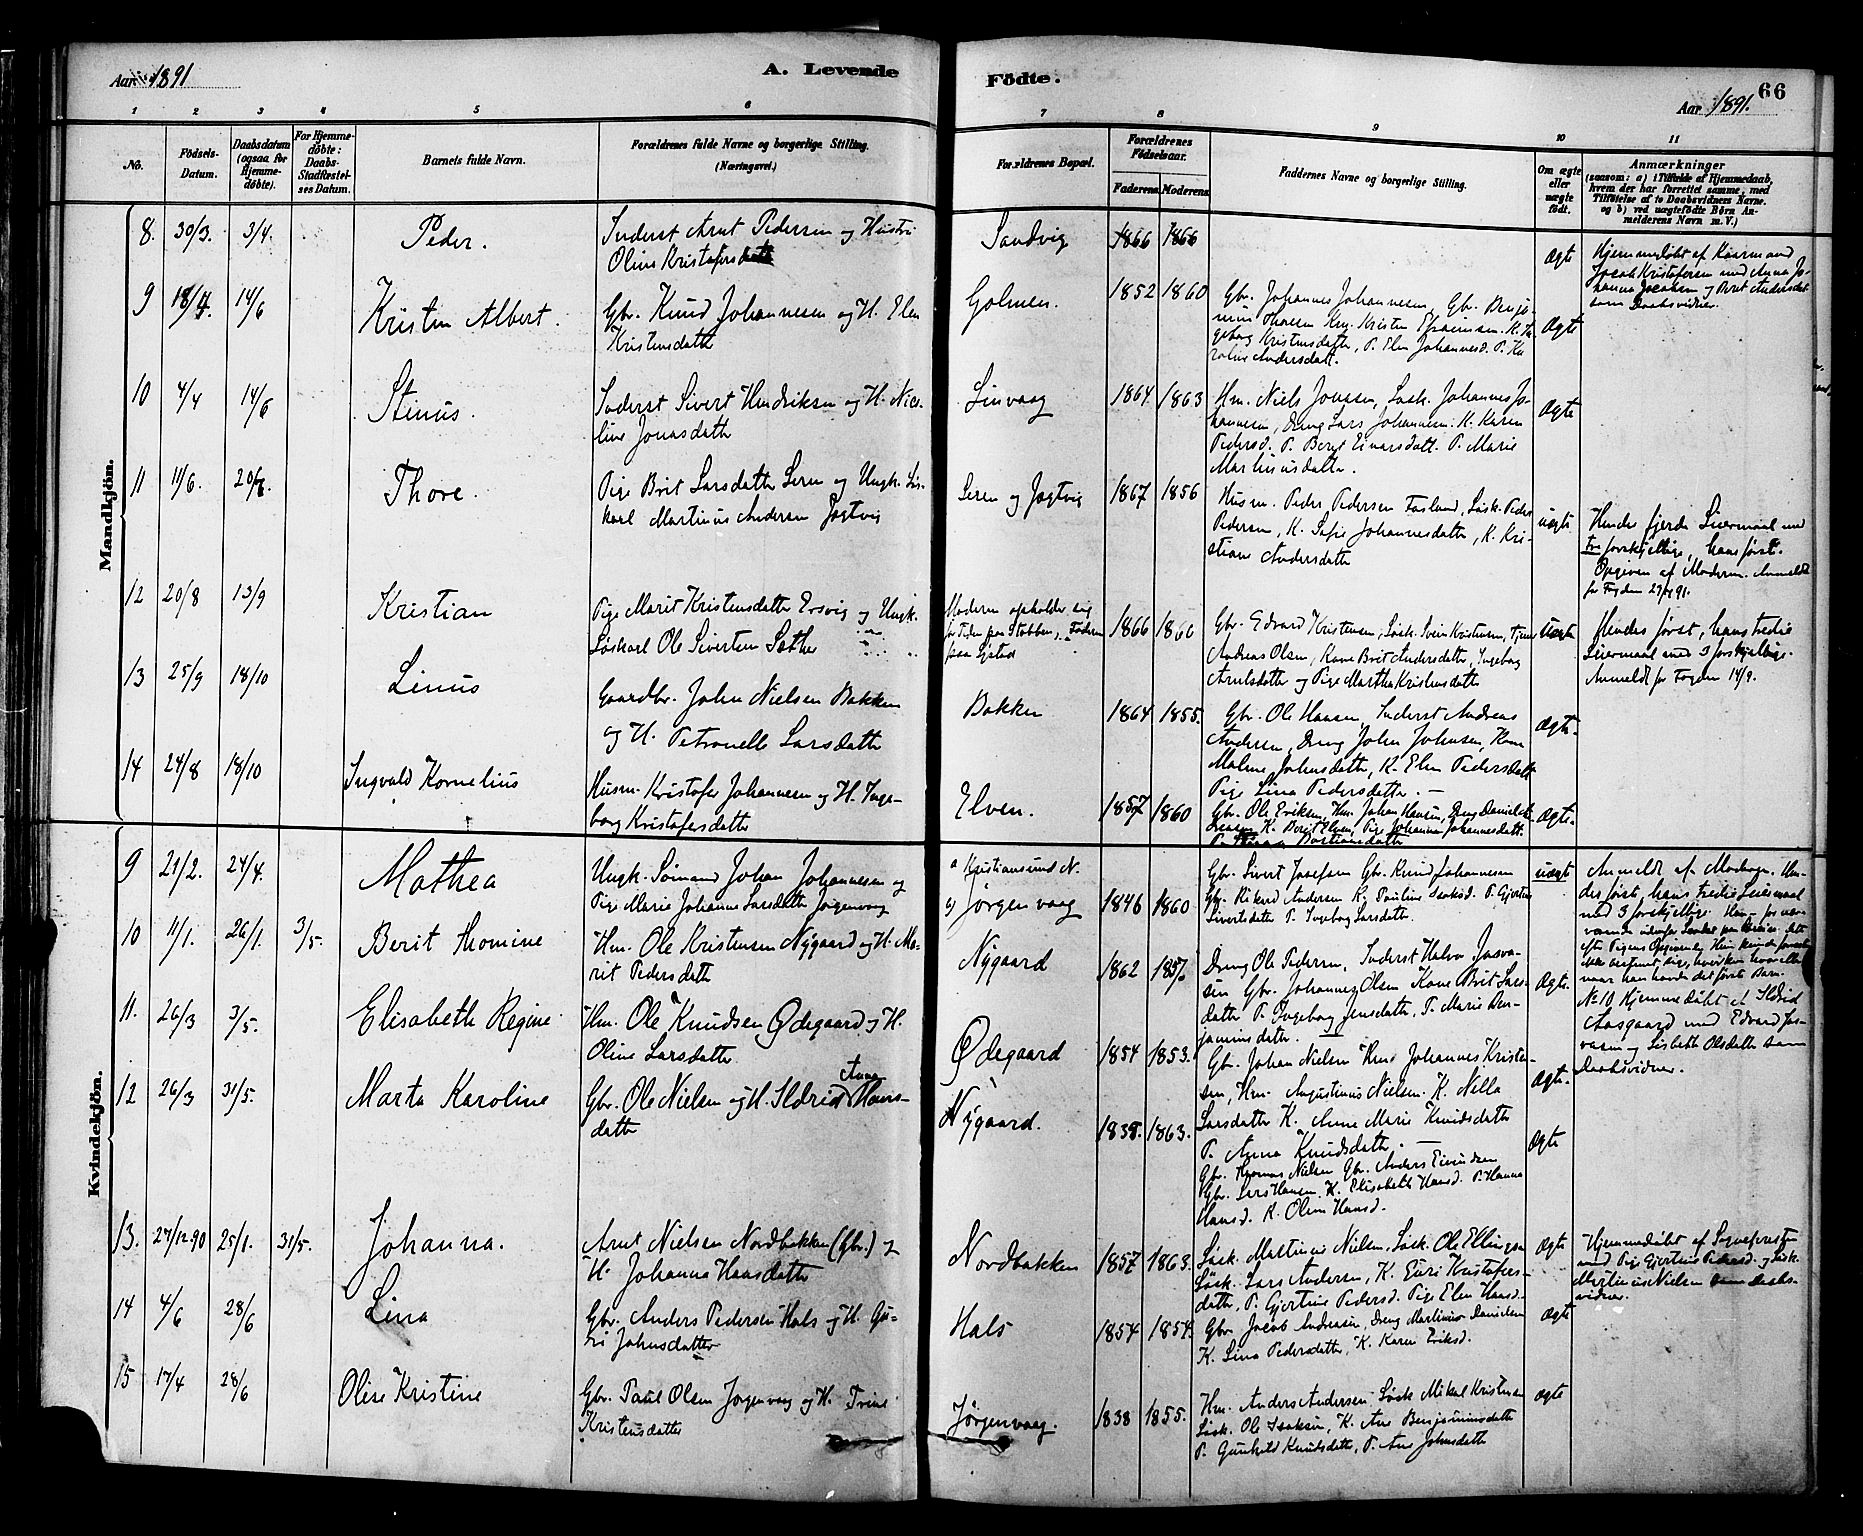 Aar 1891
A. Levende
Födte.
66
Aar 1891.
1 2 3 4 5 6 7 8 9 10 11
No.
Födsels-
Datum.
Daabsdatum
(ogsaa for
Hjemme-
döbte).
For Hjemme-
döbte:
Daabs-
Stadfæstel-
ses Datum.
Barnets fulde Navn.
Forældrenes fulde Navne og borgerlige Stilling.
(Næringsvei.)
Forældrenes Bopæl.
Forældrenes
Födselsaar.
Faderens. Moderens.
Faddernes Navne og borgerlige Stilling.
Om ægte
eller
uægte
födt.
Anmærkninger
(saasom: a) i Tilfælde af Hjemmedaab,
hvem der har forrettet samme, med
Tilföielse af to Daabsvidners Navne.
og b) ved uægtefödte Börn An-
melderens Navn m. V.)
Mandkjön.
8. 30/3. 3/4. Peder.
Inderst Arnt Pedersen og Hustru
Oline Kristofersdatter
Sandvig 1866 1866 Ægte
Hjemmedøbt af Kaarmand
Jacob Kristofersen med Anna Jo-
hanna Jacobsen og Brit Andersdat
som Daabsvidner.
9 18/4. 14/6 Kristen Albert.
Gbr. Knud Johannesen og H. Elen
Kristensdatter
Golmen. 1852 1860
Gbr. Johannes Johannesen, Gbr. Benja-
min Thoesen Km. Kristen Efraimsen. K. In-
geborg Kristensdatter, P. Elen Johannesd. P. Ka
roline Andersdatt.
Ægte
10 4/4 14/6 Stinus.
Inderst Sivert Hendriksen og H. Nico-
line Jonasdatter
Linvaag 1864 1863
Hm. Niels Jonasen, Løsk. Johannes Jo-
hannesen, Dreng Lars Johannesen. K. Karen
Pedersd. P. Beret Einarsdatt. P. Marie
Martinusdatter.
Ægte
11 11/6. 20/7. Thore.
Pige Brit Larsdatter Leren og Ungk. Løs-
karl Martinus Andersen Jøgtvig
Leren og Jøgtvig 1867 1856
Husm. Peder Pedersen Farland, Løsk. Peder
Pedersen, K. Sofie Johannesdatter, K. Kri-
stiane Andersdatter
uægte
Hendes fjerde Leiermaal med
tre forskjellige, hans først.
Opgiven af Moderen. Anmeldt
for Fogden 27/7 91.
12 20/8 13/9 Kristian
Pige Marit Kristensdatter Ersvig og Ungk.
Løskarl Ole Sivertsen Sæther
Moderen opholder sig
for Tiden paa Stobben, Faderen
paa Sjøstad
1866 1866
Gbr. Edvard Kristensen, Løsk. Svein Kristensen, Tjener
Andreas Olsen, Kone Brit Andersdatter, Ingeborg
Arntsdatter og Pige Martha Kristensdatter
uægte
Hendes først, hans tredie
Leiermaal med 3 forskjellige.
Anmeldt for Fogden 14/9.
13 25/9 18/10 Linus
Gaardbr. John Nielsen Bakken
og H. Petronelle Larsdatter
Bakken 1864 1855.
Gbr. Ole Hansen, Inderst Andreas
Andersen, Dreng John Johnsen, Kone
Malene Johnsdatter, K. Elen Pedersdatt
Pige Lina Pedersdatter.
Ægte.
14 24/8 18/10 Ingvald Kornelius
Husm. Kristofer Johannesen og H. Inge-
borg Kristofersdatter
Elven. 1857 1860
Gbr. Ole Eriksen, Hm. Johan Hansen, Dreng Daniel
K. Berit Elven, Pige Johanna Johannesdatt.
Bastiansdatter
Ægte.
Kvindekjön.
9 21/2. 24/4. Mathea
Ungk. Sømand Johan Johannesen og
Pige Marie Johanna Larsdatter Jørgenvaag
Kristiansund N.
og Jørgenvaag 1846 1860
Gbr. Sivert Josefsen Gbr. Knud Johannesen
Gbr. Rikard Andersen K. Pauline Isaksd. P. Gjertru
Sivertsdatter P. Ingeborg Larsdatter.
uægte
Anmeldt af Moderen. Hen-
des først, hans tredie Leiermaal
med 3 forskjellige.
10 11/1. 26/1. 3/5. Berit Thomine
Hm. Ole Kristensen Nygaard og H. Ma-
rit Pedersdatter
Nygaard 1862 1856
Dreng Ole Pedersen, Inderst Halvor Josva-
sen Gbr. Johannes Olsen Kone Brit Lars-
datter P. Ingeborg Jensdatter, P. Marie Ben-
jaminsdatter.
Ægte.
No 10 Hjemmedøbt af Ildrid
Aasgaard med Edvard Jos-
vasen og Lisbeth Olsdatter som
Daabsvidner.
11. 26/3 3/5. Elisabeth Regine
Hm. Ole Knudsen Ødegaard og H.
Oline Larsdatter
Ødegaard 1854 1853.
Gbr. Johan Nielsen Hm. Johannes Kristen-
sen, Hm. Augustinus Nielsen. K. Nilla
Larsdatter K. Anne Marie Knudsdatter
P. Anna Knudsdatter.
Ægte.
12 26/3 31/5. Marta Karoline
Gbr. Ole Nielsen og H. Ildrid Anna Hans-
datter
Nygaard. 1838. 1863.
Gbr. Thomas Nielsen Gbr. Anders Eivindsen
Gbr. Lars Hansen. K. Elisabeth Hansd. P. Hanna
Hansd. K. Oline Hansd.
Ægte
13. 27/12 90 25/1. 31/5. Johanna.
Arnt Nielsen Nordbakken (Gbr.) og
H. Johanna Hansdatter
Nordbakken 1857 1863.
Løsk. Martinus Nielsen, Løsk. Ole Ellingsen
Løsk. Lars Andersen, K. Guri Kristofers-
datter, P. Gjertine Pedersd. Pige Elen Hansd.
Ægte
Hjemmedøbt af Sognepresten
med Pige Gjertine Pedersd. og Løsk.
Martinus Nielsen som Daabs-
vidner.
14 4/6 28/6 Lina
Gbr. Anders Pedersen Hals og H. Gu-
ri Johnsdatter
Hals 1854 1854.
Gbr. Jacob Andreasen, Dreng Martinus Danielsen
K. Lina Pedersdatter, K. Karen Eriksd.
Ægte
15 17/4 28/6 Oline Kristine
Gbr. Paul Olsen Jørgenvaag og H. Trine
Kristensdatter
Jørgenvaag. 1838 1855.
Hm. Anders Andersen. Løsk. Mikal Kristensen
Løsk. Ole Isaksen, K. Ane Benjaminsdatter
P. Gunhild Knudsdatter, P. Ane Johnsdatter
Ægte